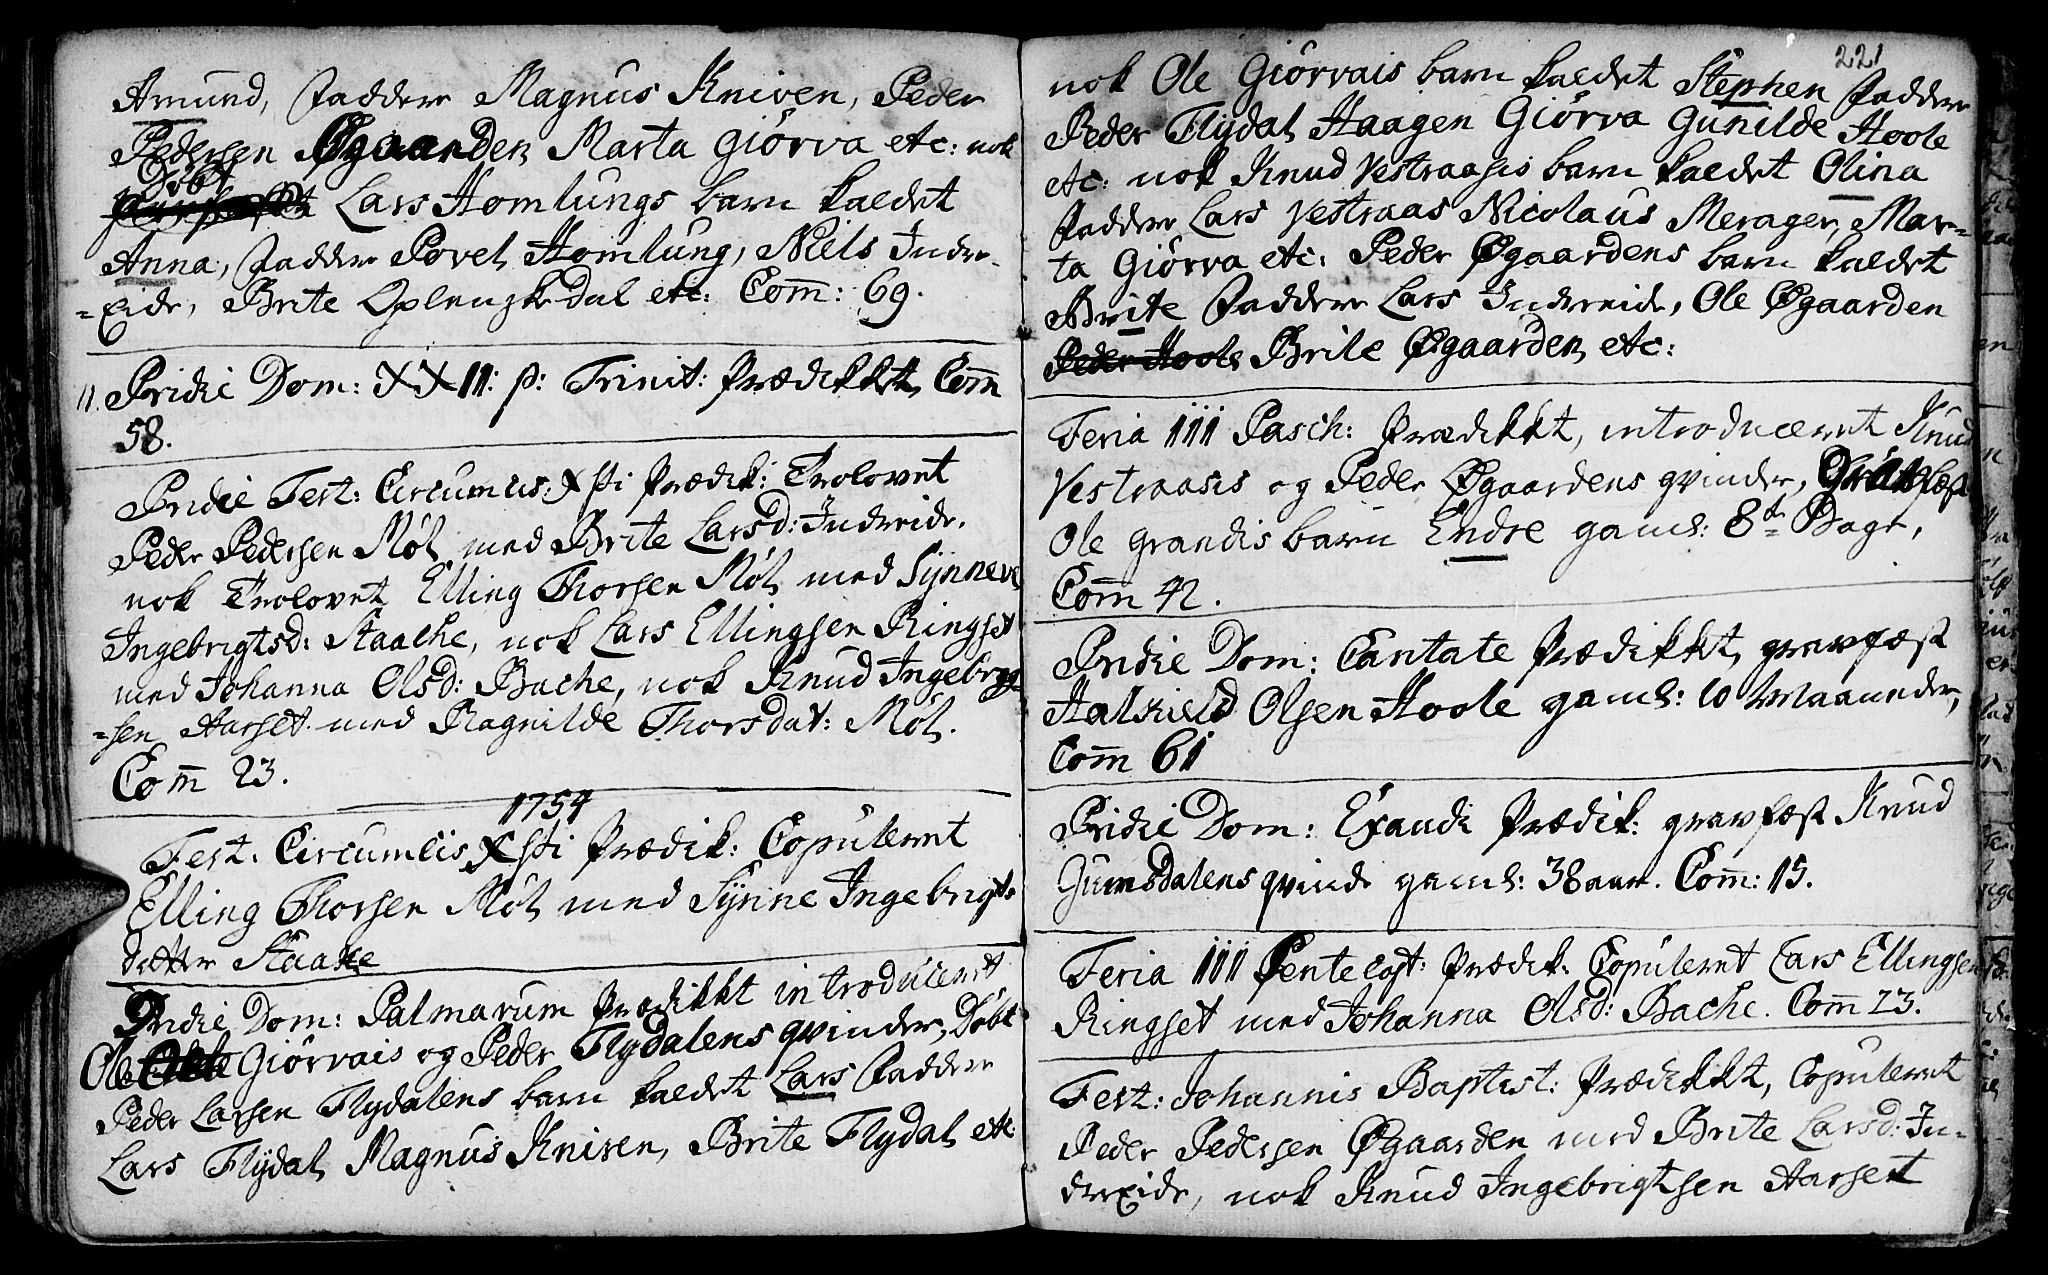 Amund, Faddere Magnus Kniven, Peder
Pedersen Øgaarden, Marta Giörva etc: nok
Döbt
Lars Homlungs barn kaldet
Anna, Faddere Povel Homlung, Niels Indre-
=Eide, Brite Oplenskedal etc: Com̄: 69.
11. Pridie Dom: XXII: p: Trinit: Prædikket, Com̄
58.
Pridie Fest: Circumcis: Xsti Prædik: Trolovet
Peder Pedersen Møl med Brite Larsd: Indreide,
nok Trolovet Elling Thorsen Møl med Synneve
Ingebrigtsd: Staache, nok Lars Ellingsen Ringset
med Johanna Olsd: Bache, nok Knud Ingebrigt
=sen Aarset med Ragnilde Thorsdat: Møl.
Com̄ 23.
1754
Fest: Circumcis Xsti Prædik: Copuleret
Elling Thorsen Møl med Synne Ingebrigts
datter Staake
Pridie Dom: Palmarum Prædikket introduceret
Ole Giörvais og Peder Flydalens qvinder, Döbt
Peder Larsen Flydalens barn kaldet Lars Faddere
Lars Flydal, Magnus Kniven, Brite Flydal etc
221
nok Ole Giörvais barn kaldet Stephen Faddere
Peder Flydal, Haagen Giörva Gunilde Hoole
etc: nok Knud Vestraasis barn kaldet Olina
Faddere Lars Vestraas Nicolaus Merager, Mar=
ta Giörva etc: Peder Øgaardens barn kaldet
Brite Faddere Lars Indreide, Ole Øgaarden
Peder Hoole Brite Øgaarden, etc:
Feria III Pasch: Prædikket, introduceret Knud
Vestraasis og Peder Øgaardens qvinder,
Ole Grandis barn Endre gaml: 8te Dage,
Com̄ 42.
Pridie Dom: Cantate Prædikket, gravfæst
Halkield Olsen Hoole gaml: 10 Maaneder,
Com̄ 61
Pridie Dom: Exaudi Prædik: gravfæst Knud
Gumsdalens qvinde gaml: 38 aar. Com̄: 15.
Feria III Pentecost: Prædik: Copuleret Lars Ellingsen
Ringset med Johanna Olsd: Bache. Com̄ 23.
Fest: Johannis Baptist: Prædikket, Copuleret
Peder Pedersen Øgaarden med Brite Larsd: In=
dreeide, nok Knud Ingebrigtsen Aarset